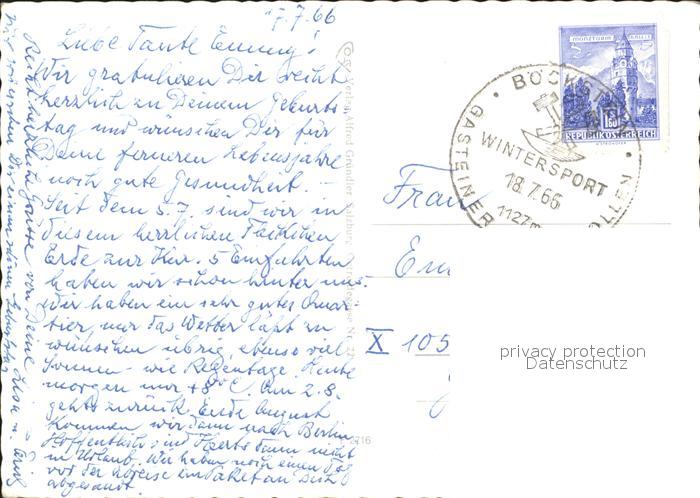 17.7.66
Liebe Tante Emmy!
Wir gratulieren Dir recht
herzlich zu Deinem Geburts
tag und wünschen Dir für
Deine ferneren Lebensjahre
noch gute Gesundheit. –
Seit dem 5.7. sind wir in
diesem herrlichen Fleckchen
Erde zur Kur. 5 Einfahrten
haben wir schon hinter uns.
Wir haben ein sehr gutes Quar
tier, nur das Wetter läßt zu
wünschen übrig, ebenso viel
Sonnen- wie Regentage. Heute
morgen nur +8°C. Am 2.8.
geht's zurück. Ende August
kommen wir dann nach Berlin
Hoffentlich sind dann nicht
in Urlaub. Wir haben noch einen Tag
vor der Abreise ein Paket an Dich
abgesandt
Recht herzliche Grüsse von Deine
Lisa u. Erich
Cosy-Verlag Alfred Gründler, Salzburg
2716
MÜNZTURM HALL
5
1.50
REPUBLIK ÖSTERREICH
BÖCKST
GASTEINER
WINTERSPORT
18.7.66
1127m
Frau
Em
X 105
privacy protection
Datenschutz